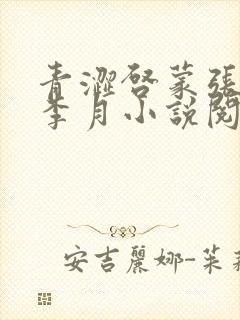 青澀啓蒙張
李月小說閱
安吉麗娜-茱莉